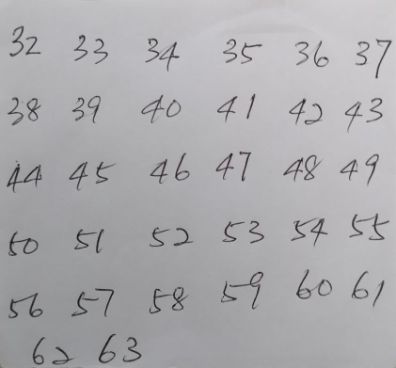 32 33 34 35 36 37
38 39 40 41 42 43
44 45 46 47 48 49
50 51 52 53 54 55
56 57 58 59 60 61
62 63